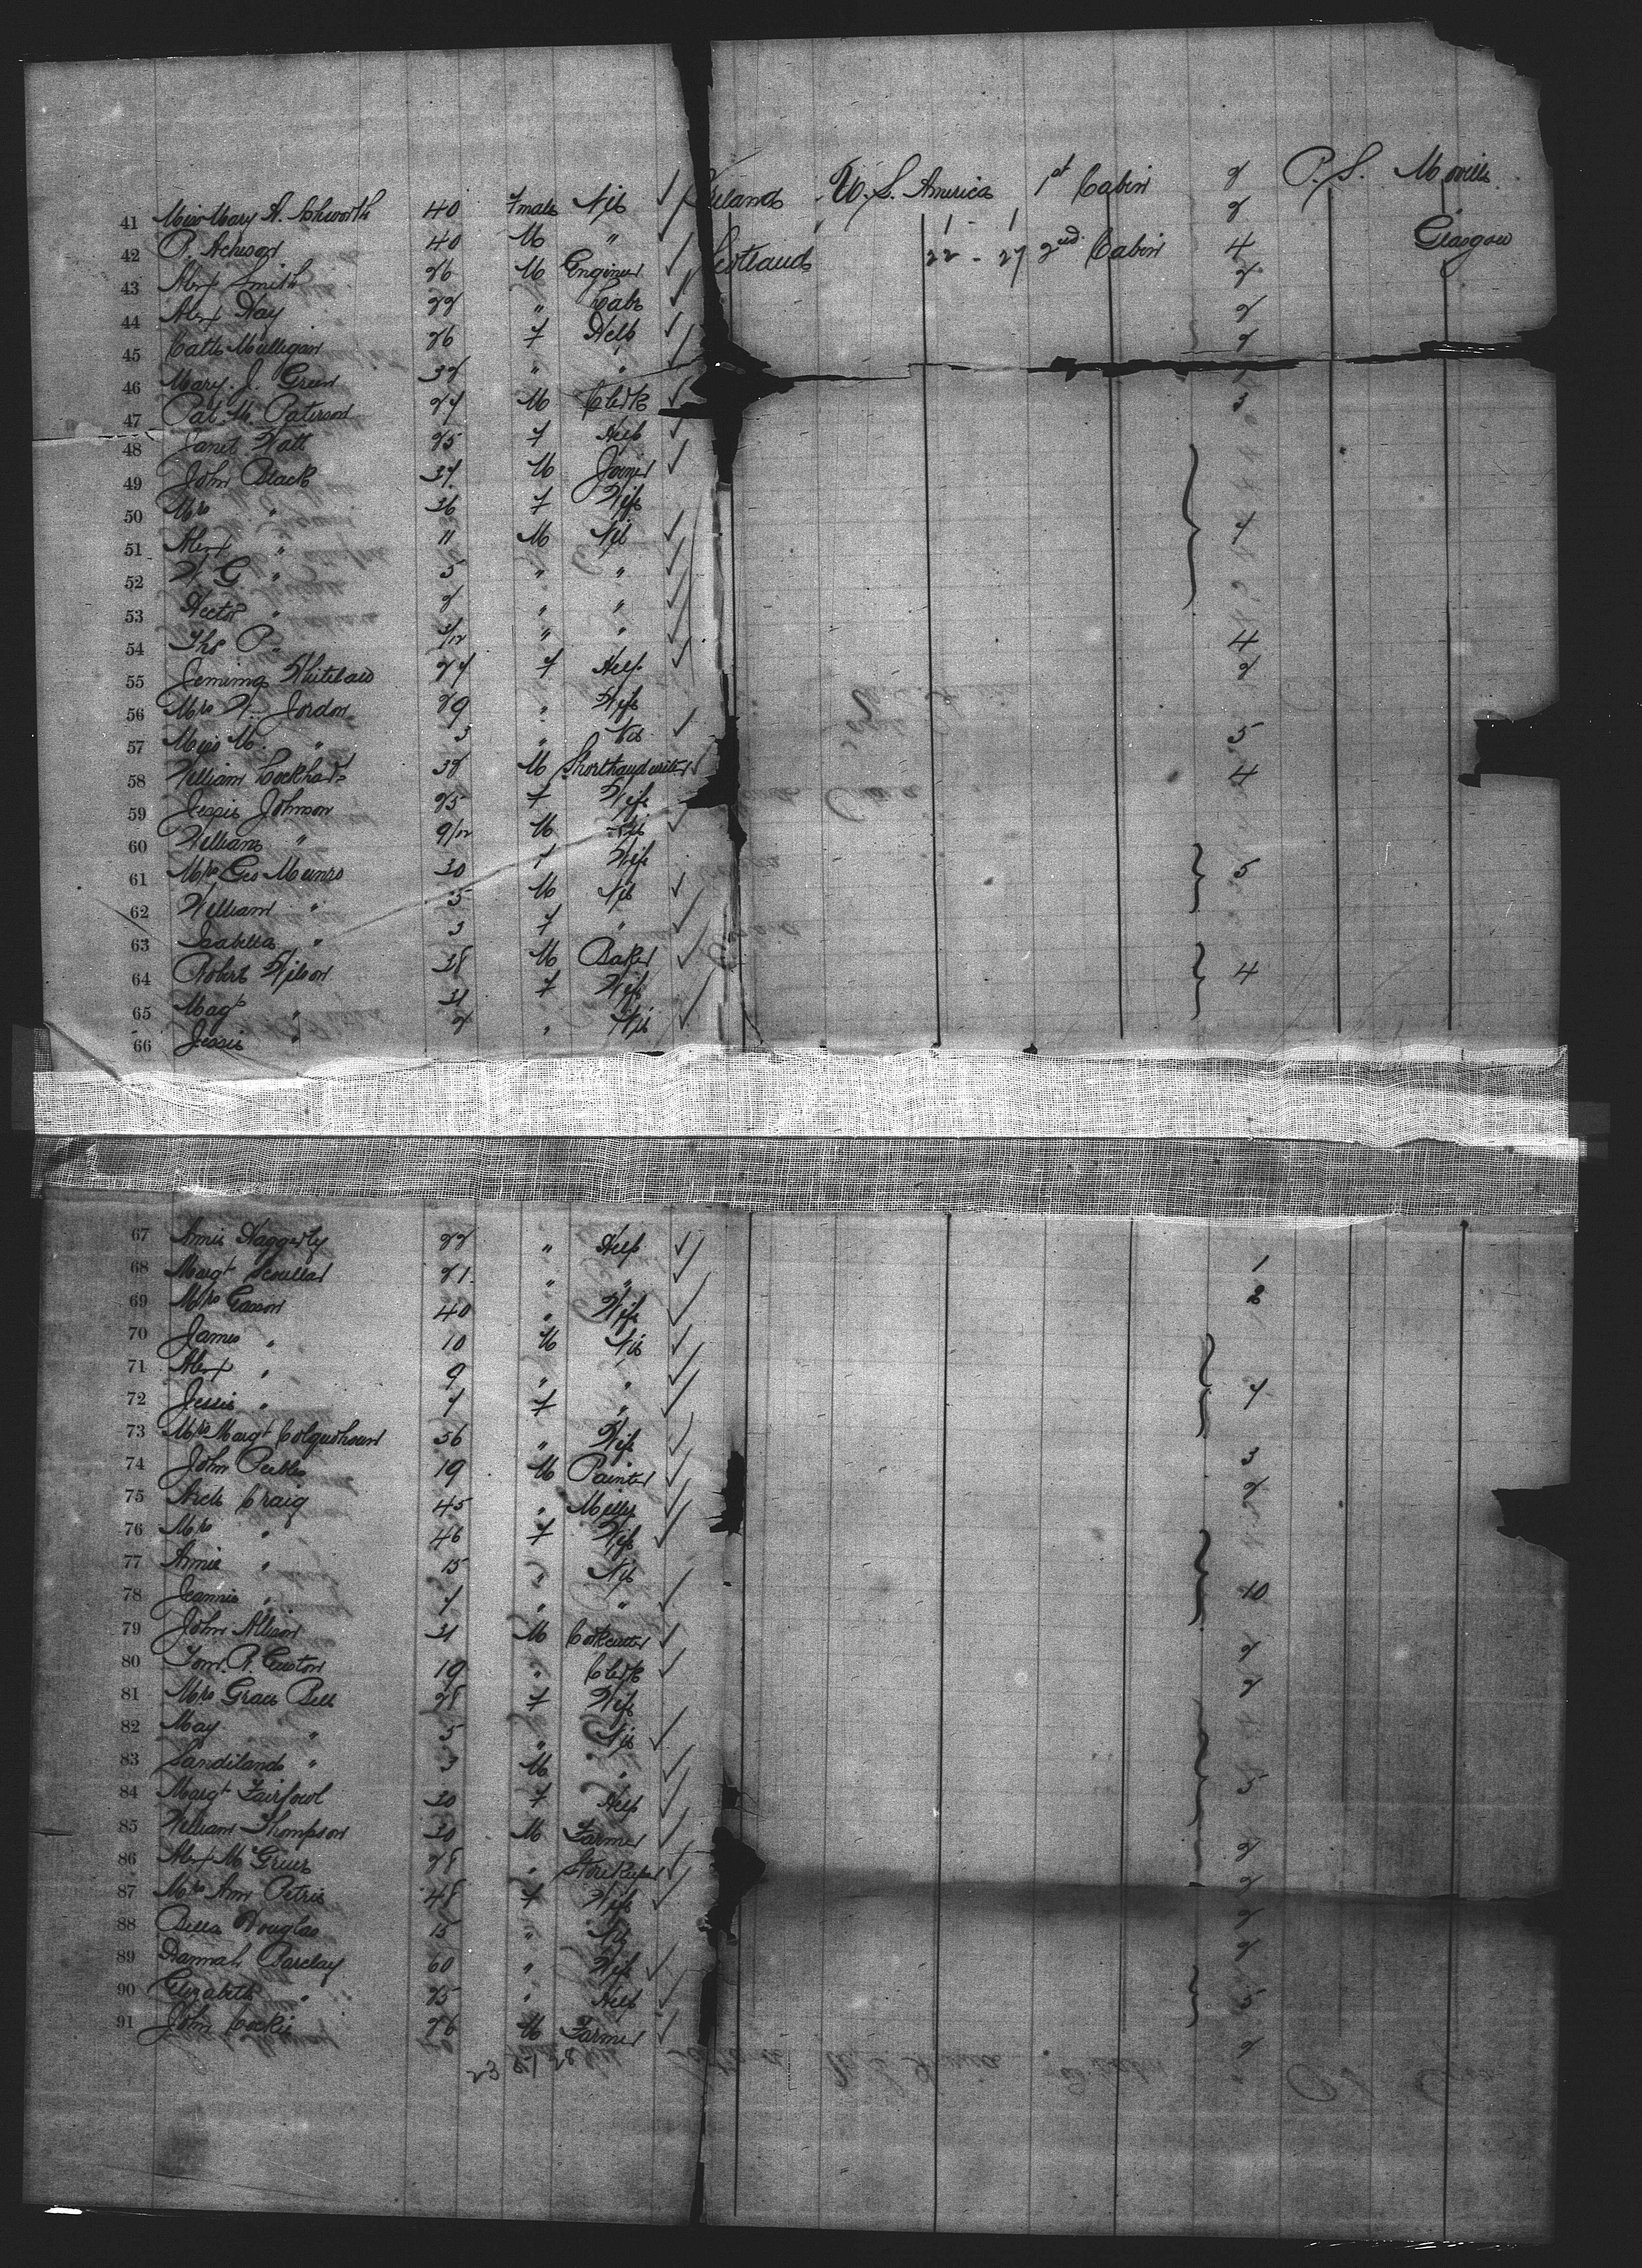 41 Miss Mary A. Ashworth 40 Female Nil ✓ Ireland U. S. America 1st Cabin 2 P. S. Moville
42 P. Acheson 40 M " ✓ 2
43 Alexr Smith 26 M Engineer ✓ Scotland 22 - 27 2nd Cabin 4 Glasgow
44 Alex Hay 22 " Labr ✓ 2
45 Cath Mulligan 26 F Help ✓ 2
46 Mary. J. Green 32 " " ✓ 2
47 Pat. M. Paterson 27 M Clerk ✓ 1
48 Janet Watt 25 F Help ✓ 3
49 John Black 37 M Joiner ✓
50 Mrs " 36 F Wife
51 Alexr " 11 M Nil ✓ 7
52 W. G. " 5 " " ✓
53 Hector " 2 " " ✓
54 Thos P. " /12 " " ✓ 4
55 Jemima Whitelaw 27 F Help ✓ 2
56 Mrs W. Jordon 29 " Wife
57 Miss M. " 3 " Nil ✓ 5
58 William Lockhart 32 M Shorthand writer ✓ 4
59 Jessie Johnson 25 F Wife
60 William " 9/12 M Nil ✓
61 Mrs Geo Munro 30 F Wife 5
62 William " 5 M Nil ✓
63 Isabella " 3 F " ✓
64 Robert Wilson 38 M Baker ✓ 4
65 Magt " 31 F Wife
66 Jessie " 2 " Nil ✓
67 Annie Haggerty 22 " Help ✓
68 Margt Scoullar 21 " " ✓ 1
69 Mrs Easson 40 " Wife ✓ 2
70 James " 10 M Nil ✓
71 Alexr " 9 " " ✓
72 Jessie " 7 F " ✓ 7
73 Mrs Margt Colquhoun 56 " Wife ✓
74 John Peebles 19 M Painter ✓ 3
75 Arch Craig 45 " Miller ✓ 2
76 Mrs " 46 F Wife ✓
77 Annie " 15 " Nil
78 Jeannie " 7 " " ✓ 10
79 John Allison 31 M Corkcutter ✓
80 Tom. R. Custon 19 " Clerk ✓ 2
81 Mrs Grace Bell 28 F Wife 2
82 May " 5 " Nil ✓
83 Sandilands " 3 M " ✓
84 Margt Fairfowl 30 F Help ✓ 5
85 William Thompson 30 M Farmer ✓
86 Alexr McGruer 28 " Storekeeper ✓ 2
87 Mrs Ann Petrie 48 F Wife ✓ 2
88 Bella Douglas 15 " Nil 2
89 Hannah Barclay 60 " Wife ✓ 2
90 Elizabeth " 25 " Help ✓ 5
91 John Cockie 26 M Farmer ✓ 2
23 28